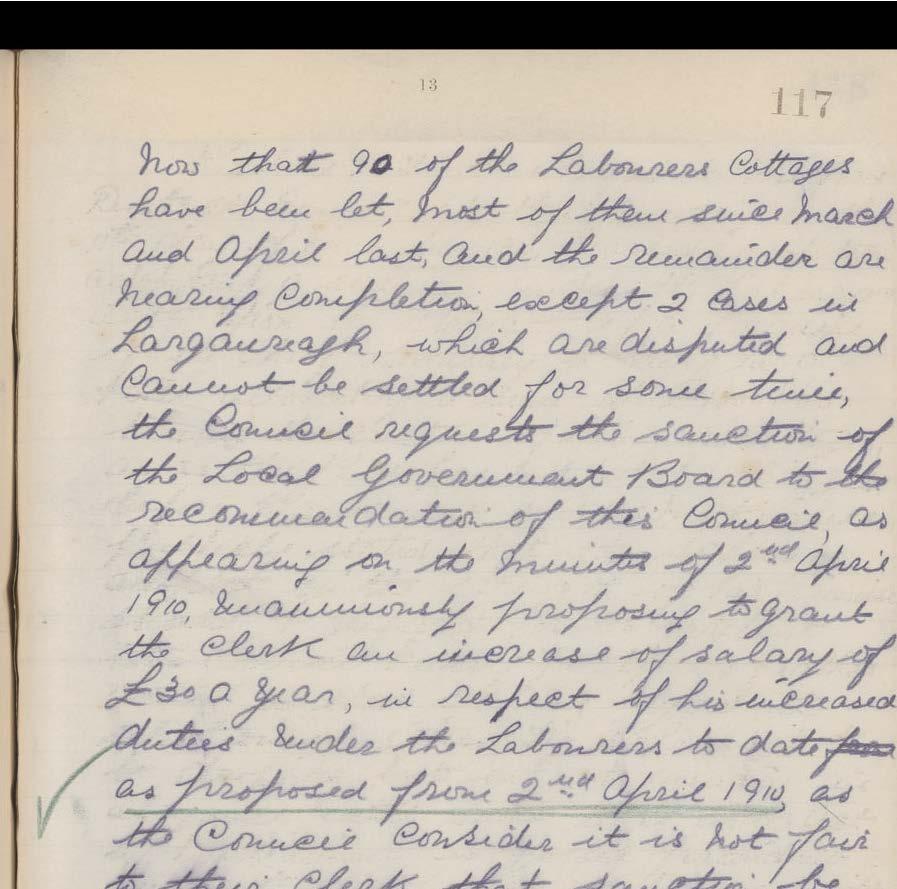 13
117
Now that 90 of the Labourers Cottages
have been let, most of them since March
and April last, and the remainder are
nearing completion, except 2 cases in
Larganreagh, which are disputed and
cannot be settled for some time,
the Council requests the sanction of
the Local Government Board to the
recommendation of this Council, as
appearing on the minutes of 2nd April
1910, unanimously proposing to grant
the Clerk an increase of salary of
£30 a year, in respect of his increased
duties under the Labourers to date from
as proposed from 2nd April 1910, as
the Council consider it is not fair
to their Clerk that sanction be